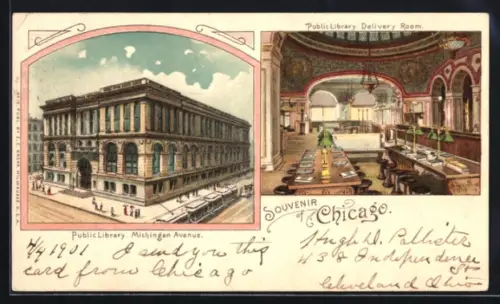 Public Library Delivery Room.
Public Library. Michingan Avenue.
SOUVENIR of Chicago.
4/9 1901 I send you this
card from Chicago
Hugh D. Pallister
43 Independence St
Cleveland Ohio